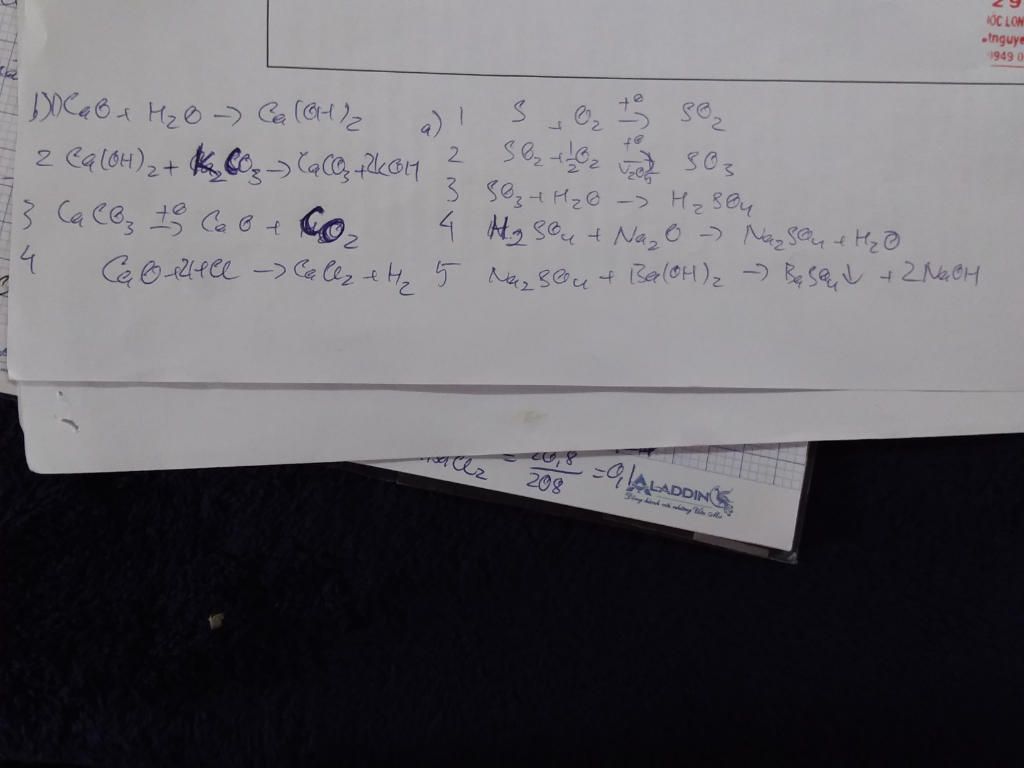 29
ỐC LON
.tnguye
0949 0
b) 1) CaO + H2O → Ca(OH)2
2 Ca(OH)2 + K2CO3 → CaCO3 + 2KOH
3 CaCO3 t° → CaO + CO2
4 CaO + 2HCl → CaCl2 + H2
a) 1 S + O2 t° → SO2
2 SO2 + 1/2 O2 t° → V2O5 SO3
3 SO3 + H2O → H2SO4
4 H2SO4 + Na2O → Na2SO4 + H2O
5 Na2SO4 + Ba(OH)2 → BaSO4↓ + 2NaOH
BaCl2 = 20,8/208 = 0,1
ALADDIN